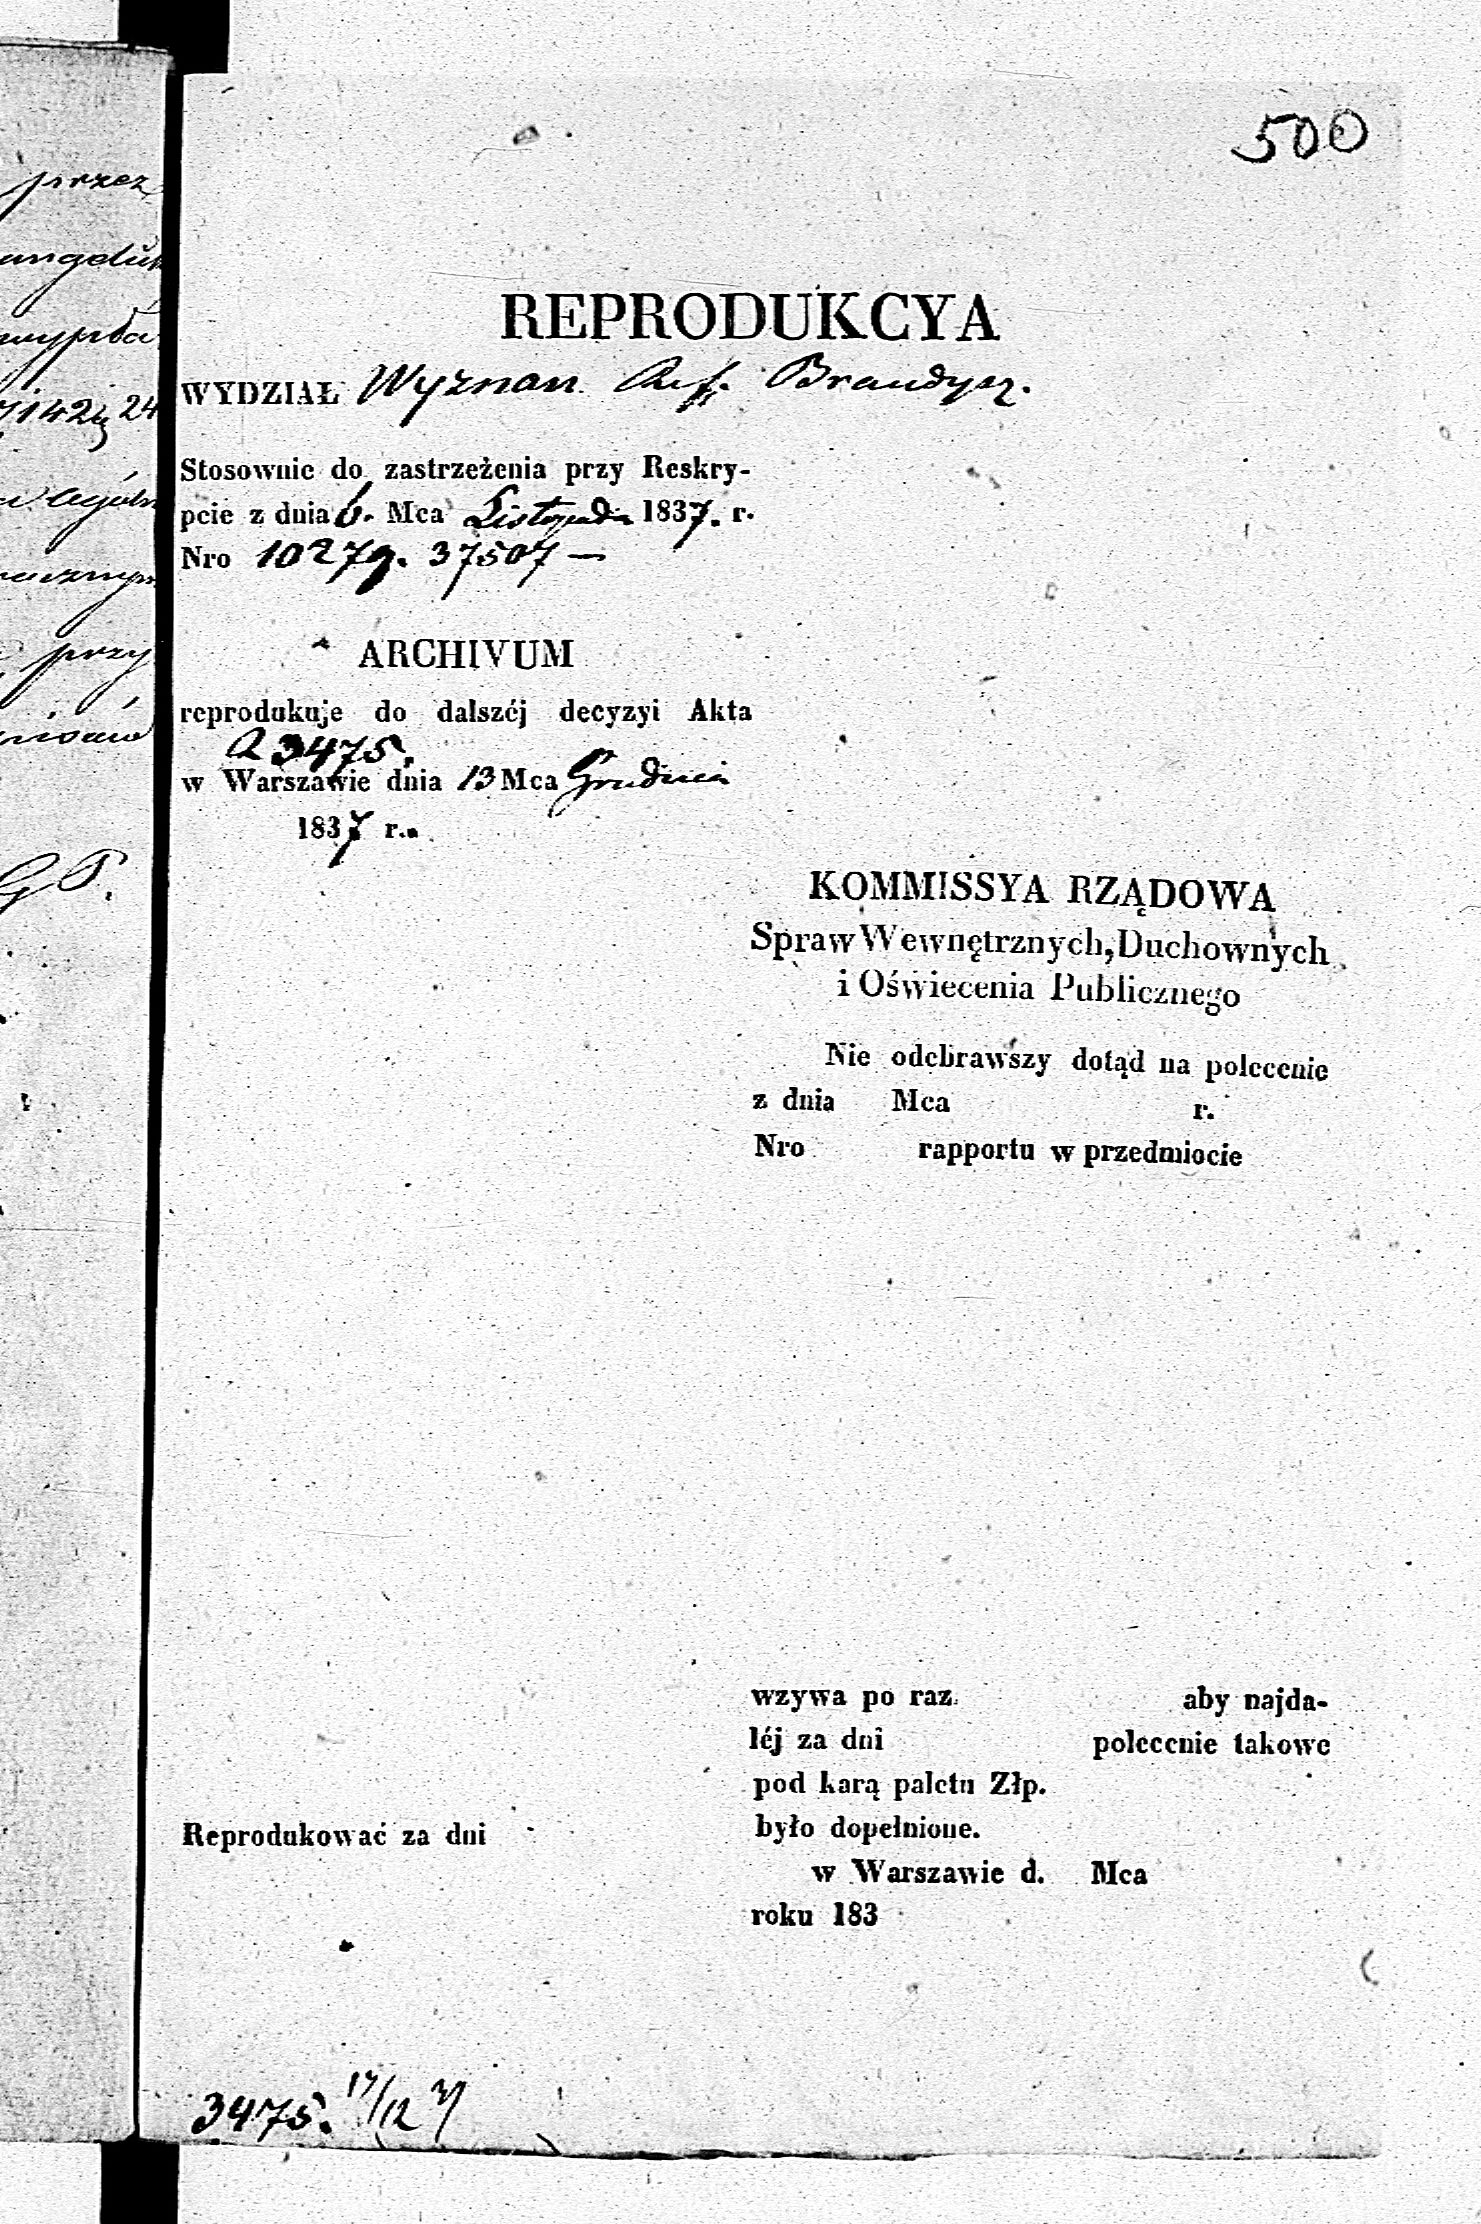 500
przez
wypła
7142 24
przy
REPRODUKCYA
WYDZIAŁ Wyznan Ref. Brandysz.
Stosownie do zastrzeżenia przy Reskry-
pcie z dnia 6. Mca Listopada 1837. r.
Nro 10279. 37507 —
ARCHIVUM
reprodukuje do dalszéj decyzyi Akta
a 3475.
w Warszawie dnia 13 Mca Grudnia
1837 r.
KOMMISSYA RZĄDOWA
Spraw Wewnętrznych, Duchownych
i Oświecenia Publicznego
Nie odebrawszy dotąd na polecenie
z dnia Mca r.
Nro rapportu w przedmiocie
wzywa po raz aby najda-
léj za dni polecenie takowe
pod karą paletu Złp.
było dopełnione.
w Warszawie d. Mca
roku 183
Reprodukować za dni
3475. 17/12